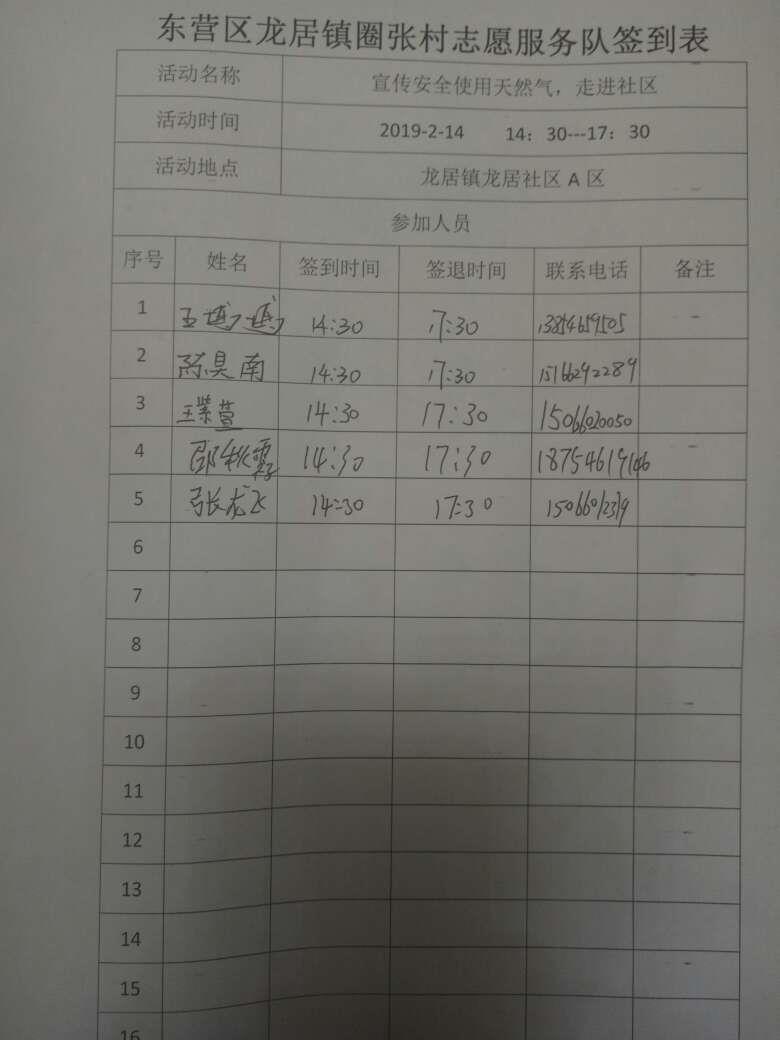 东营区龙居镇圈张村志愿服务队签到表
活动名称 宣传安全使用天然气，走进社区
活动时间 2019-2-14 14：30---17：30
活动地点 龙居镇龙居社区 A 区
参加人员
序号 姓名 签到时间 签退时间 联系电话 备注
1 14:30 17:30 13854659505
2 陈昊南 14:30 17:30 15166292289
3 王紫萱 14:30 17:30 15066020050
4 邵秋霞 14:30 17:30
5 张龙飞 14:30 17:30 15066012319
6
7
8
9
10
11
12
13
14
15
16